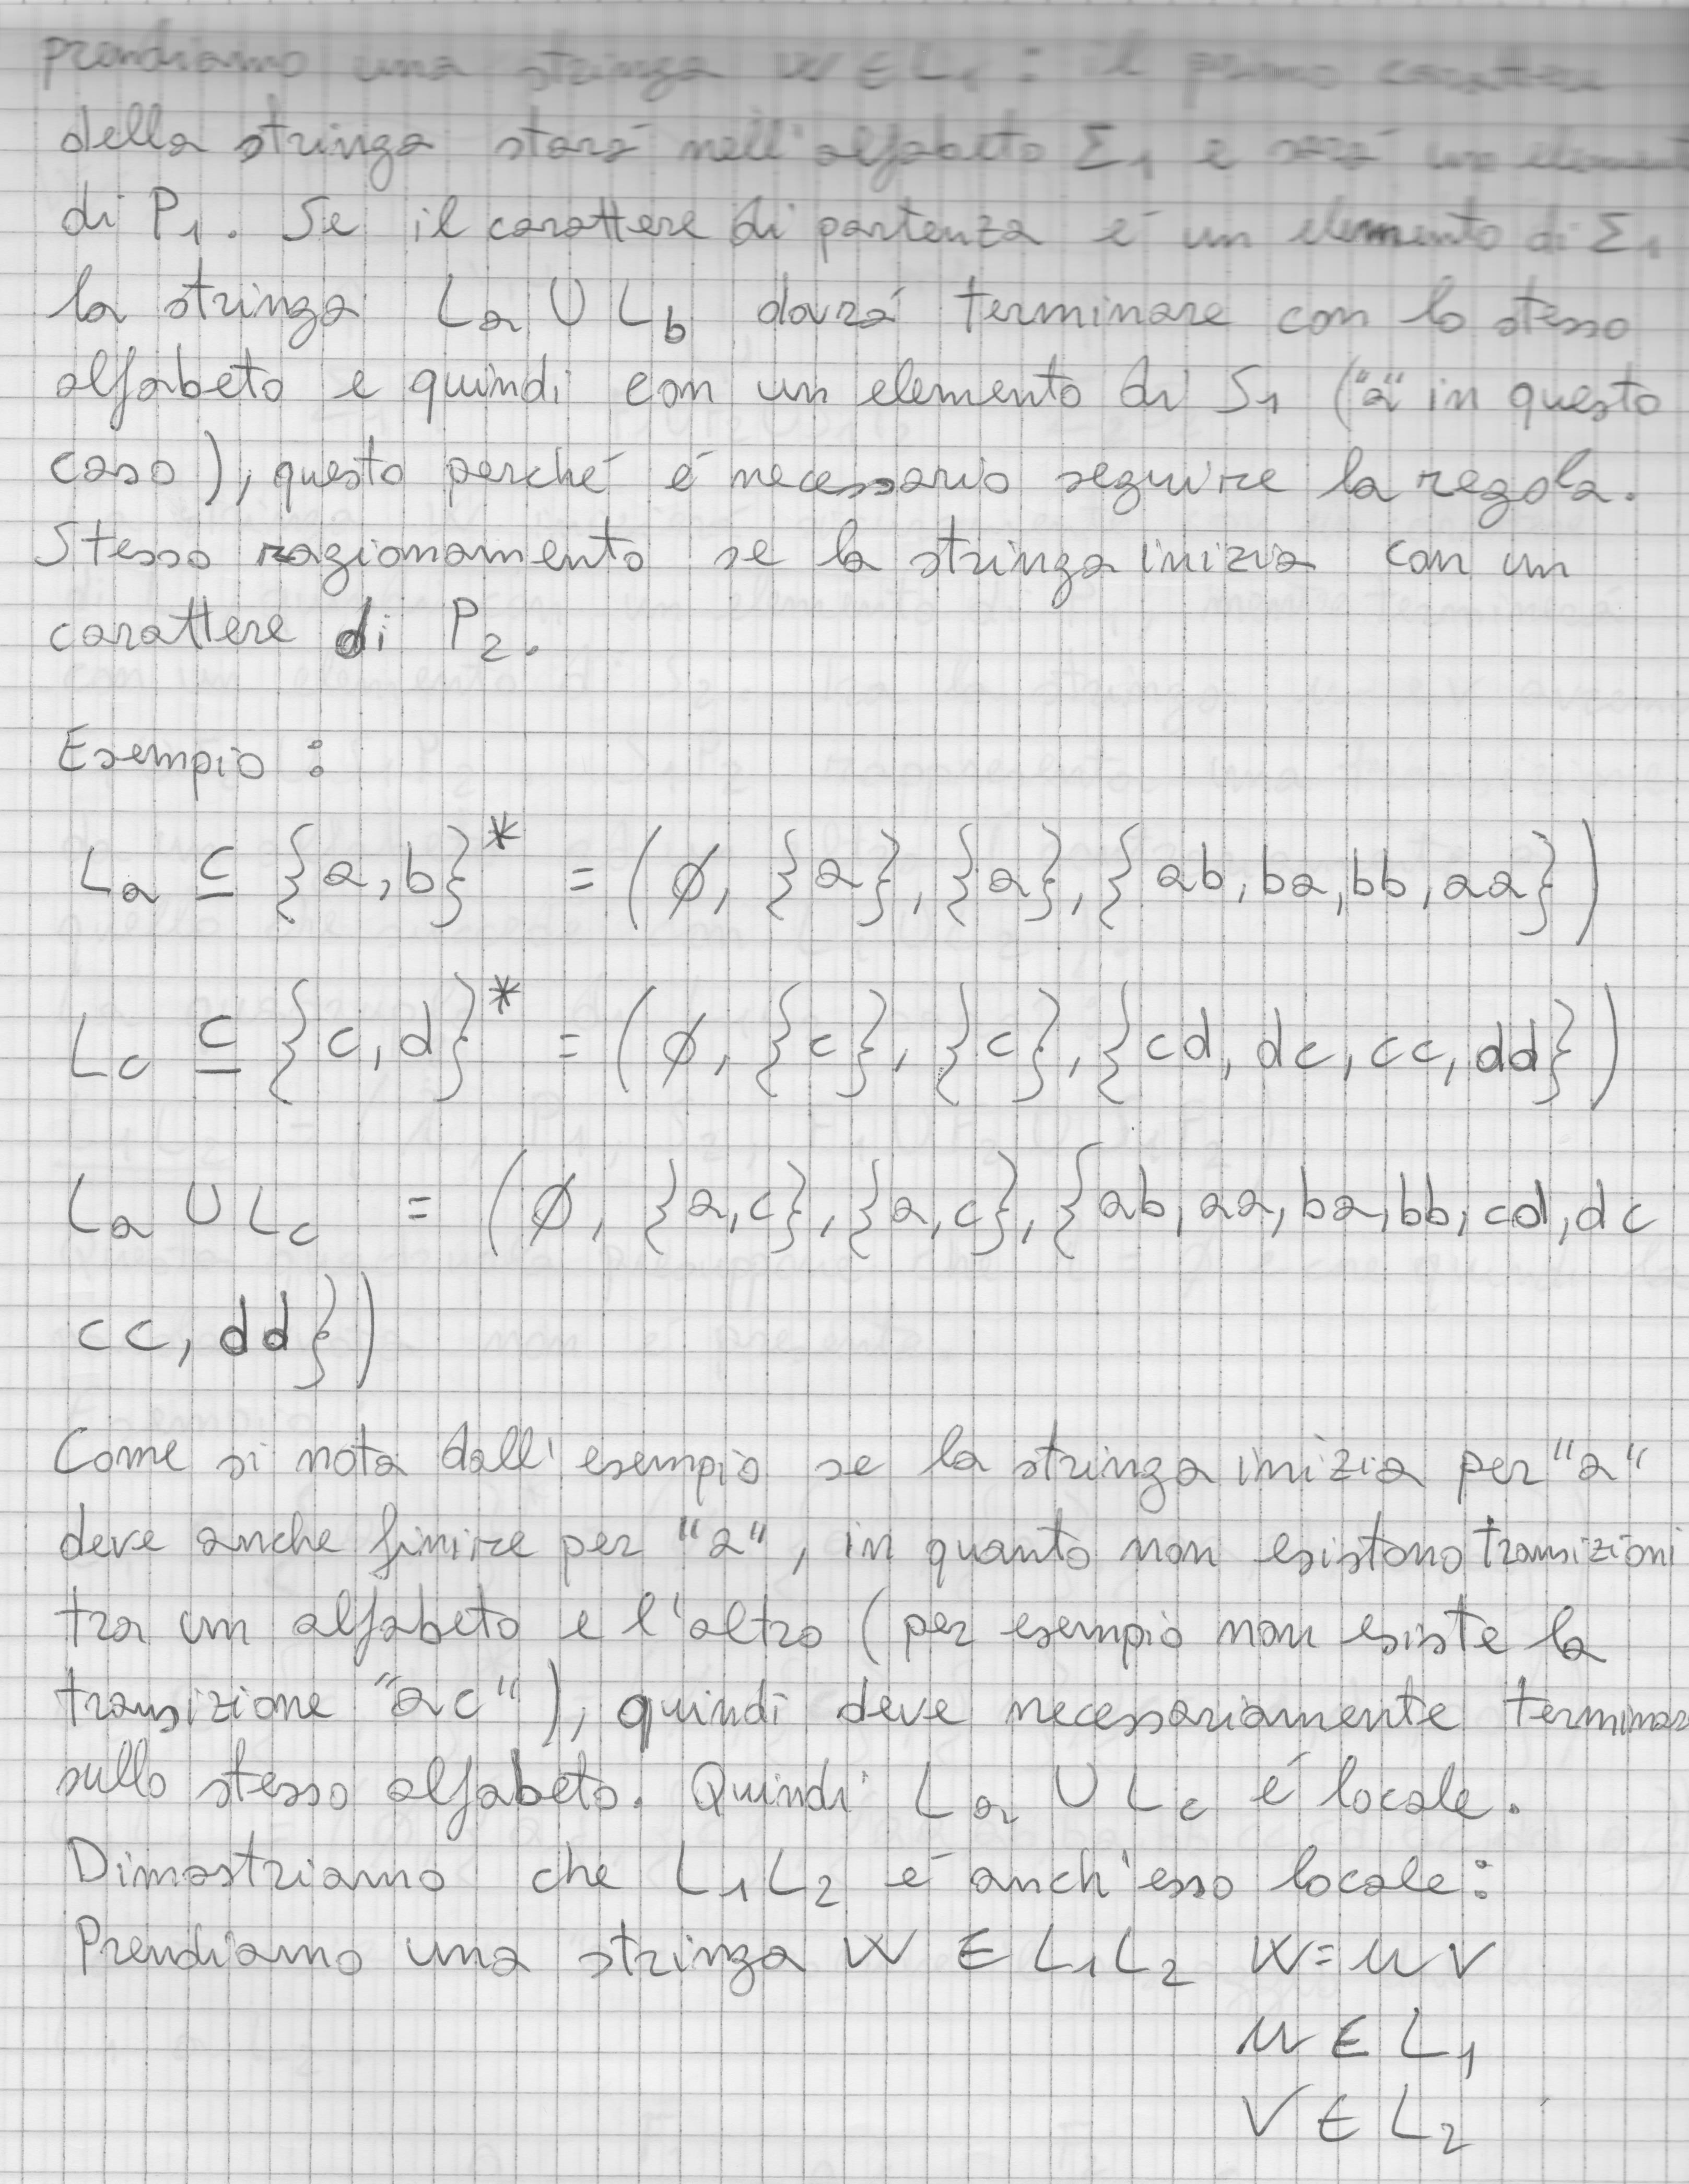 prendiamo una stringa w ∈ L₁ : il primo carattere
della stringa stará nell'alfabeto Σ₁ e sará un element
di P₁. Se il carattere di partenza é un elemento di Σ₁
la stringa La ∪ Lb dovrá terminare con lo stesso
alfabeto e quindi con un elemento di S₁ ("a" in questo
caso), questo perché é necessario seguire la regola.
Stesso ragionamento se la stringa inizia con un
carattere di P₂.
Esempio :
La ⊆ {a,b}* = (ø, {a}, {a}, {ab, ba, bb, aa})
Lc ⊆ {c,d}* = (ø, {c}, {c}, {cd, dc, cc, dd})
La ∪ Lc = (ø, {a,c}, {a,c}, {ab, aa, ba, bb, cd, dc
cc, dd})
Come si nota dall'esempio se la stringa inizia per "a"
deve anche finire per "a", in quanto non esistono transizioni
tra un alfabeto e l'altro (per esempio non esiste la
transizione "ac"), quindi deve necessariamente terminar
sullo stesso alfabeto. Quindi La ∪ Lc é locale.
Dimostriamo che L₁L₂ é anch'esso locale:
Prendiamo una stringa W ∈ L₁L₂ W=uv
u ∈ L₁
V ∈ L₂